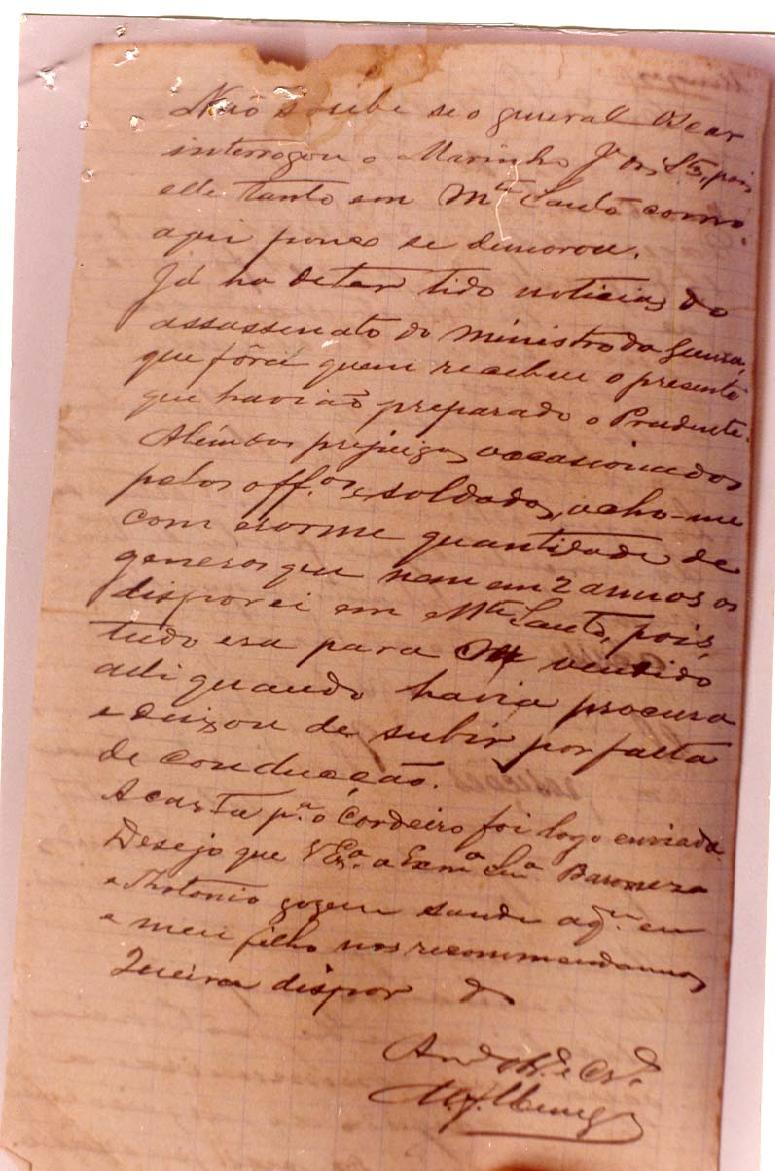 Não soube se o general Oscar
interrogou o Marinho pois
elle tanto em Mte Santo como
aqui pouco se demorou.
Já ha de ter tido noticias do
assassinato do ministro da Guerra,
que fôra quem recebeu o presente
que havião preparado o Prudente.
Alem dos prejuizos occasionados
pelos offos e soldados, acho-me
com enorme quantidade de
generos que nem em 2 annos os
disporei em Mte Santo, pois
tudo era para ser vendido
alli quando havia procura
e deixou de subir por falta
de conducção.
A carta pa o Cordeiro foi logo enviada.
Desejo que VExa a Exma Snra Baroneza
e Antonio gozem saude aqm eu
e meu filho nos recommendamos
Queira dispor do
Amo